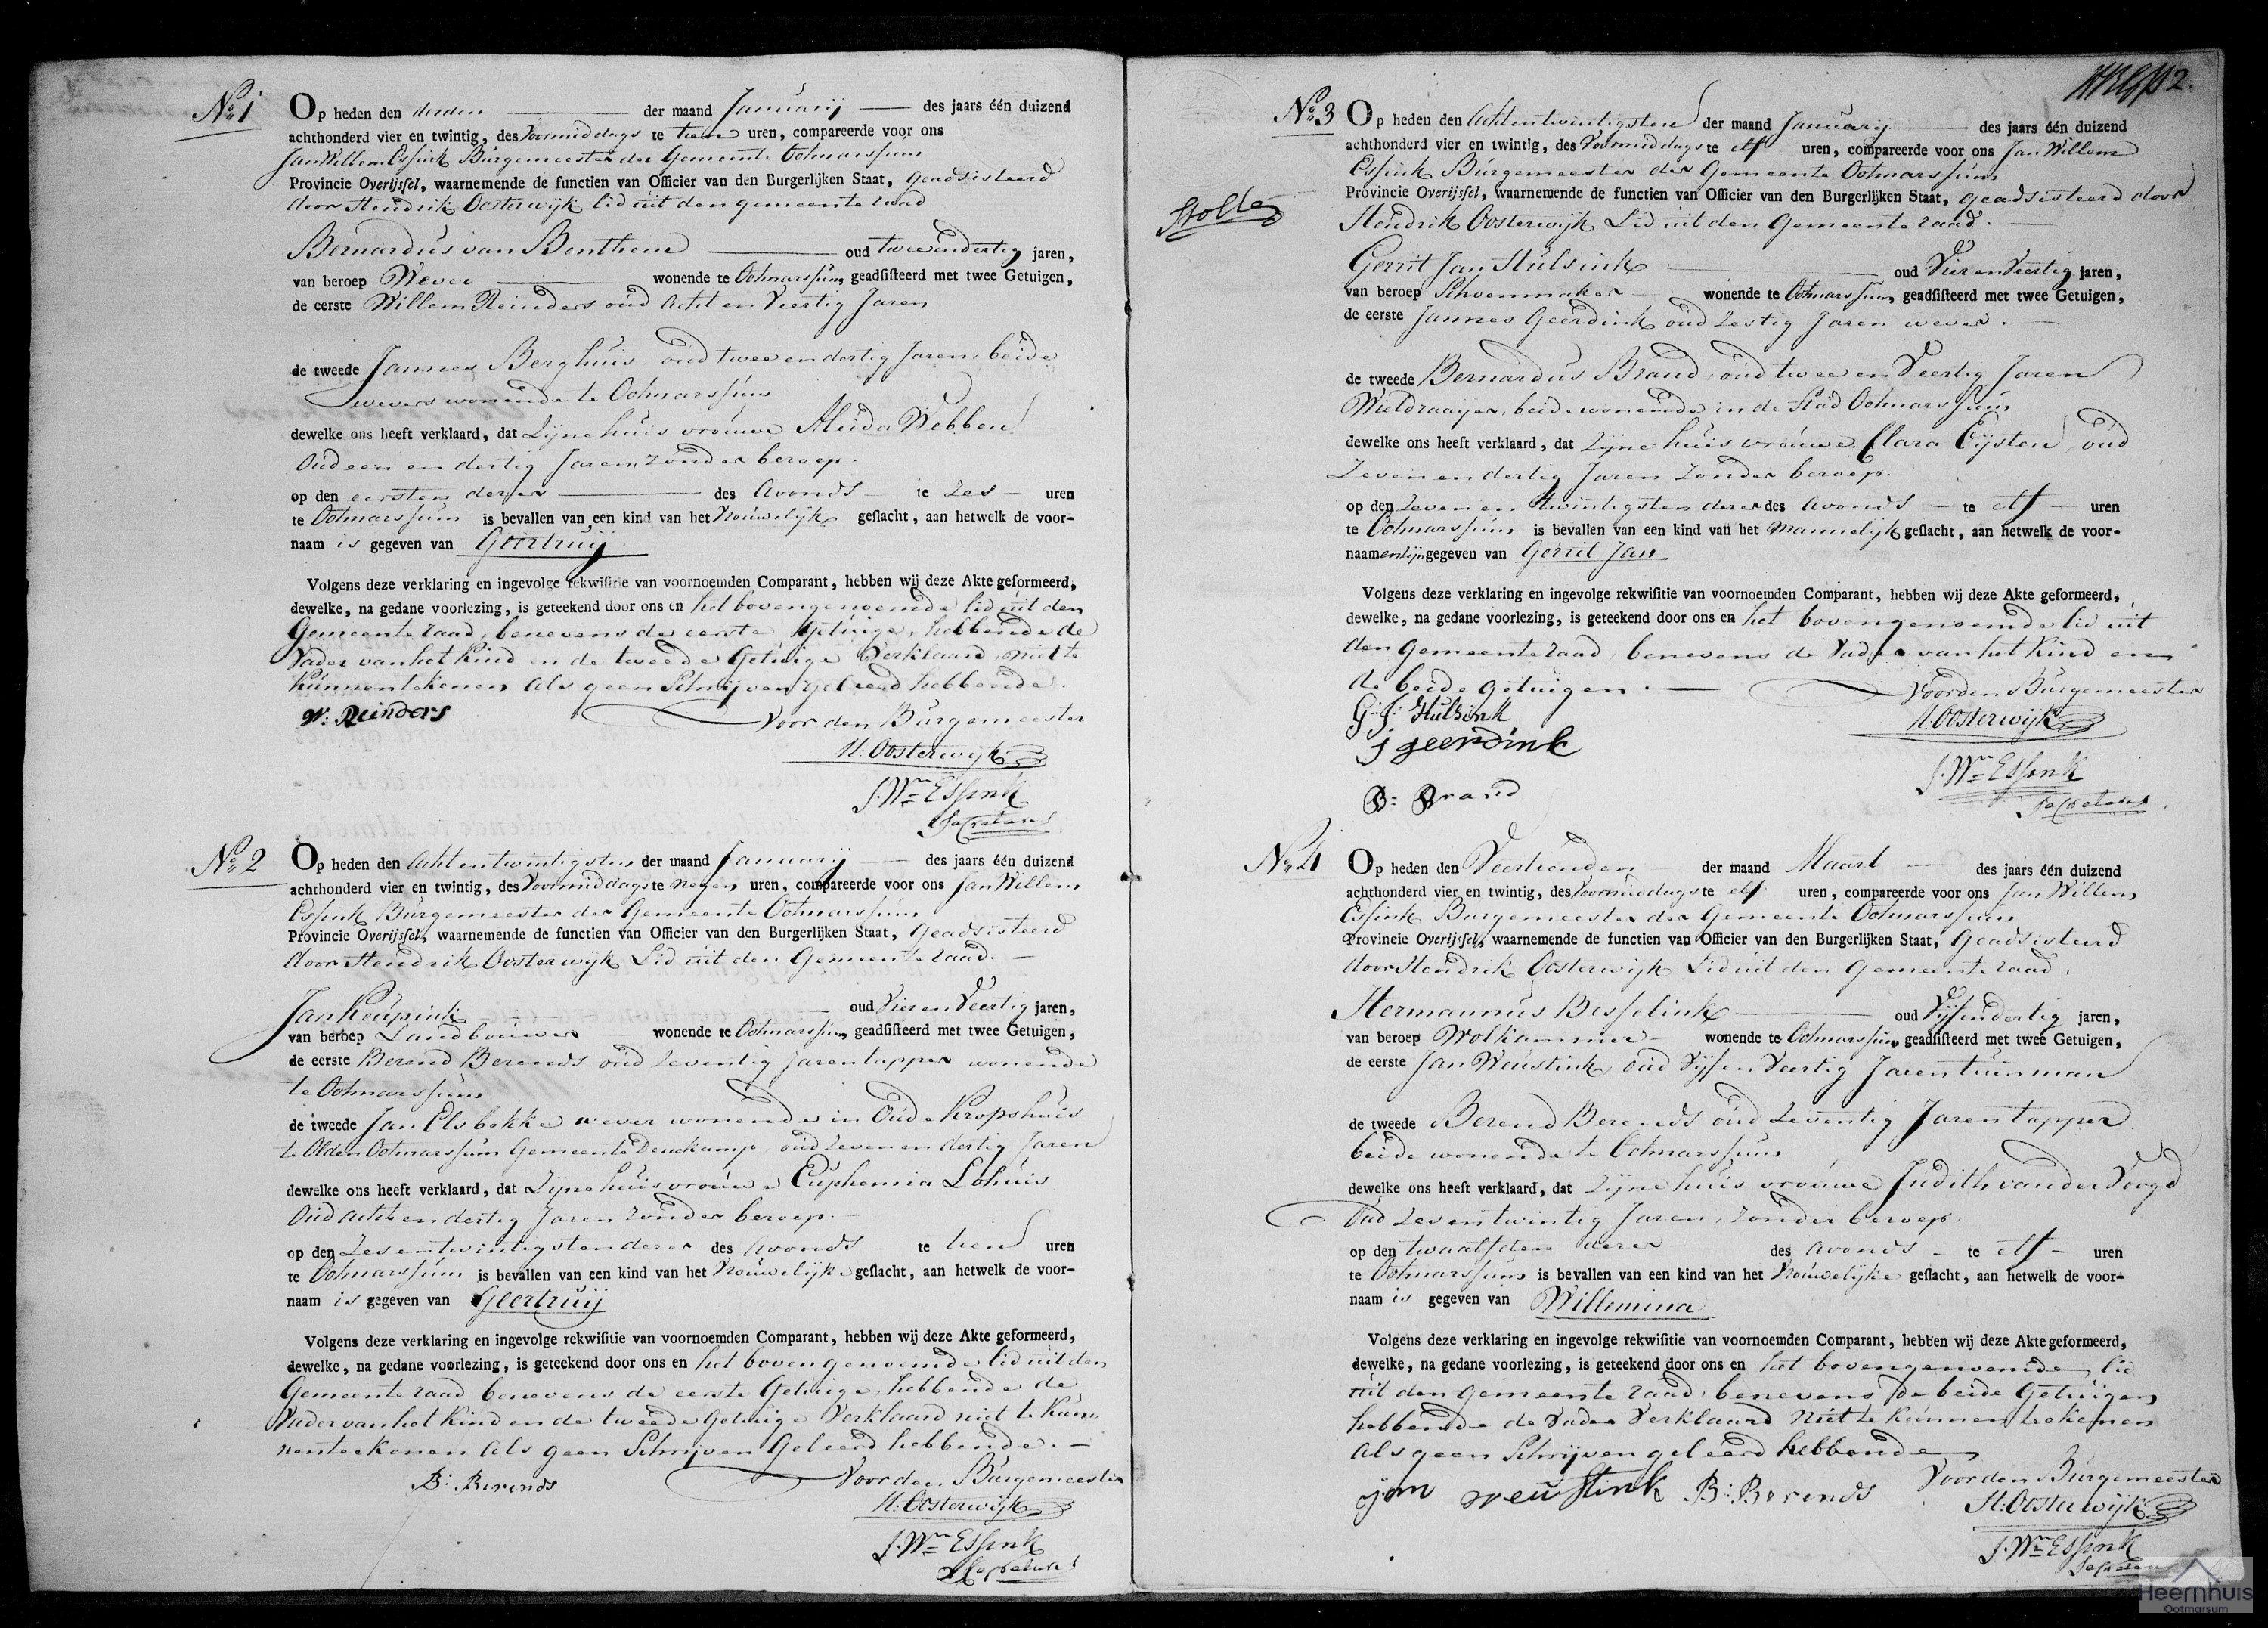 No 1
Op heden den derden der maand Januarij des jaars één duizend
achthonderd vier en twintig, des Voormiddags te tien uren, compareerde voor ons
Jan Willem Essink Burgemeester der Gemeente Ootmarssum
Provincie Overijssel, waarnemende de functien van Officier van den Burgerlijken Staat, Geadsisteerd
door Hendrik Oosterwijk lid uit den gemeente raad
Bernardus van Benthem oud twee endertig jaren,
van beroep Wever wonende te Ootmarssum geadsisteerd met twee Getuigen,
de eerste Willem Reinders oud Acht en Veertig Jaren
de tweede Jannes Berghuis oud twee en dertig Jaren, beide
wevers wonende te Ootmarssum
dewelke ons heeft verklaard, dat Zijne huis vrouwe Aleida Webben
Oud een en dertig Jaren, Zonder beroep.
op den eersten dezer des Avonds te Zes uren
te Ootmarssum is bevallen van een kind van het Vrouwelijk geslacht, aan hetwelk de voor-
naam is gegeven van Geertruij
Volgens deze verklaring en ingevolge rekwisitie van voornoemden Comparant, hebben wij deze Akte geformeerd,
dewelke, na gedane voorlezing, is geteekend door ons en het bovengenoemde lid uit den
Gemeente raad, benevens de eerste Getuige, hebbende de
Vader van het Kind en de tweede Getuige Verklaard, niet te
Kunnen tekenen Als geen Schrijven geleerd hebbende.
W: Reinders
Voor den Burgemeester
H: Oosterwijk
J. Wm Essink
Secretaris
No 2
Op heden den Acht entwintigsten der maand Januarij des jaars één duizend
achthonderd vier en twintig, des Voormiddags te negen uren, compareerde voor ons Jan Willem
Essink Burgemeester der Gemeente Ootmarssum
Provincie Overijssel, waarnemende de functien van Officier van den Burgerlijken Staat, Geadsisteerd
door Hendrik Oosterwijk Lid uit den Gemeente raad.
Jan Keupink oud Vier en Veertig jaren,
van beroep Landbouwer wonende te Ootmarssum geadsisteerd met twee Getuigen,
de eerste Berend Berends oud Zeventig Jaren tapper wonende
te Ootmarssum
de tweede Jan Elsbekke wever wonende in Oude Kropshuis
te Olden Ootmarssum Gemeente Denekamp oud Zeven en dertig Jaren
dewelke ons heeft verklaard, dat Zijne huis vrouwe Euphemia Lohuis
Oud Acht en dertig Jaren Zonder beroep.
op den Zes entwintigsten dezer des Avonds te tien uren
te Ootmarssum is bevallen van een kind van het Vrouwelijke geslacht, aan hetwelk de voor-
naam is gegeven van Geertruij
Volgens deze verklaring en ingevolge rekwisitie van voornoemden Comparant, hebben wij deze Akte geformeerd,
dewelke, na gedane voorlezing, is geteekend door ons en het boven genoemde lid uit den
Gemeente raad benevens de eerste Getuige, hebbende de
Vader van het Kind en de tweede Getuige Verklaard niet te Kun-
nen teekenen Als geen Schrijven Geleerd hebbende.
B: Berends
Voor den Burgemeester
H: Oosterwijk
J. Wm Essink
Secretaris
2.
No 3
Op heden den Acht entwintigsten der maand Januarij des jaars één duizend
achthonderd vier en twintig, des Voormiddags te elf uren, compareerde voor ons Jan Willem
Essink Burgemeester der Gemeente Ootmarssum
Provincie Overijssel, waarnemende de functien van Officier van den Burgerlijken Staat, geadsisteerd door
Hendrik Oosterwijk Lid uit den Gemeente raad.
Gerrit Jan Hulsink oud Vier en Veertig jaren,
van beroep Schoenmaker wonende te Ootmarssum geadsisteerd met twee Getuigen,
de eerste Jannes Geerdink oud Zestig Jaren wever.
de tweede Bernardus Brand, oud twee en Veertig Jaren
Wieldraaijer, beide wonende in de Stad Ootmarssum
dewelke ons heeft verklaard, dat Zijne huis vrouwe Clara Eijsten, oud
Zeven en dertig Jaren Zonder beroep.
op den Zeven en twintigsten dezer des Avonds te elf uren
te Ootmarssum is bevallen van een kind van het Mannelijk geslacht, aan hetwelk de voor-
naamen zijn gegeven van Gerrit Jan
Volgens deze verklaring en ingevolge rekwisitie van voornoemden Comparant, hebben wij deze Akte geformeerd,
dewelke, na gedane voorlezing, is geteekend door ons en het bovengenoemde lid uit
den Gemeente raad, benevens de Vader van het Kind en
de beide Getuigen.
Voor den Burgemeester
G: J: Hulsink
H: Oosterwijk
j geerdink
J. Wm Essink
B: Brand
Secretaris
No 4
Op heden den Veertienden der maand Maart des jaars één duizend
achthonderd vier en twintig, des Voormiddags te elf uren, compareerde voor ons Jan Willem
Essink Burgemeester der Gemeente Ootmarssum
Provincie Overijssel, waarnemende de functien van Officier van den Burgerlijken Staat, Geadsisteerd
door Hendrik Oosterwijk Lid uit den Gemeente raad.
Hermannus Besselink oud Vijf endertig jaren,
van beroep Wolkammer wonende te Ootmarssum geadsisteerd met twee Getuigen,
de eerste Jan Weustink, oud Vijf en Veertig Jaren tuinman
de tweede Berend Berends oud Zeventig Jaren tapper
beide wonende te Ootmarssum
dewelke ons heeft verklaard, dat Zijne huis vrouwe Judith van der Voogd
Oud Zes entwintig Jaren, Zonder beroep,
op den twaalfden dezer des Avonds te elf uren
te Ootmarssum is bevallen van een kind van het Vrouwelijke geslacht, aan hetwelk de voor-
naam is gegeven van Willemina
Volgens deze verklaring en ingevolge rekwisitie van voornoemden Comparant, hebben wij deze Akte geformeerd,
dewelke, na gedane voorlezing, is geteekend door ons en het bovengenoemde lid
uit den Gemeente raad, benevens de beide Getuigen
hebbende de Vader Verklaard Niet te Kunnen teekenen
Als geen Schrijven geleerd hebbende
Voor den Burgemeester
jan weustink B: Berends
H: Oosterwijk
J. Wm Essink
Heernhuis
Ootmarsum